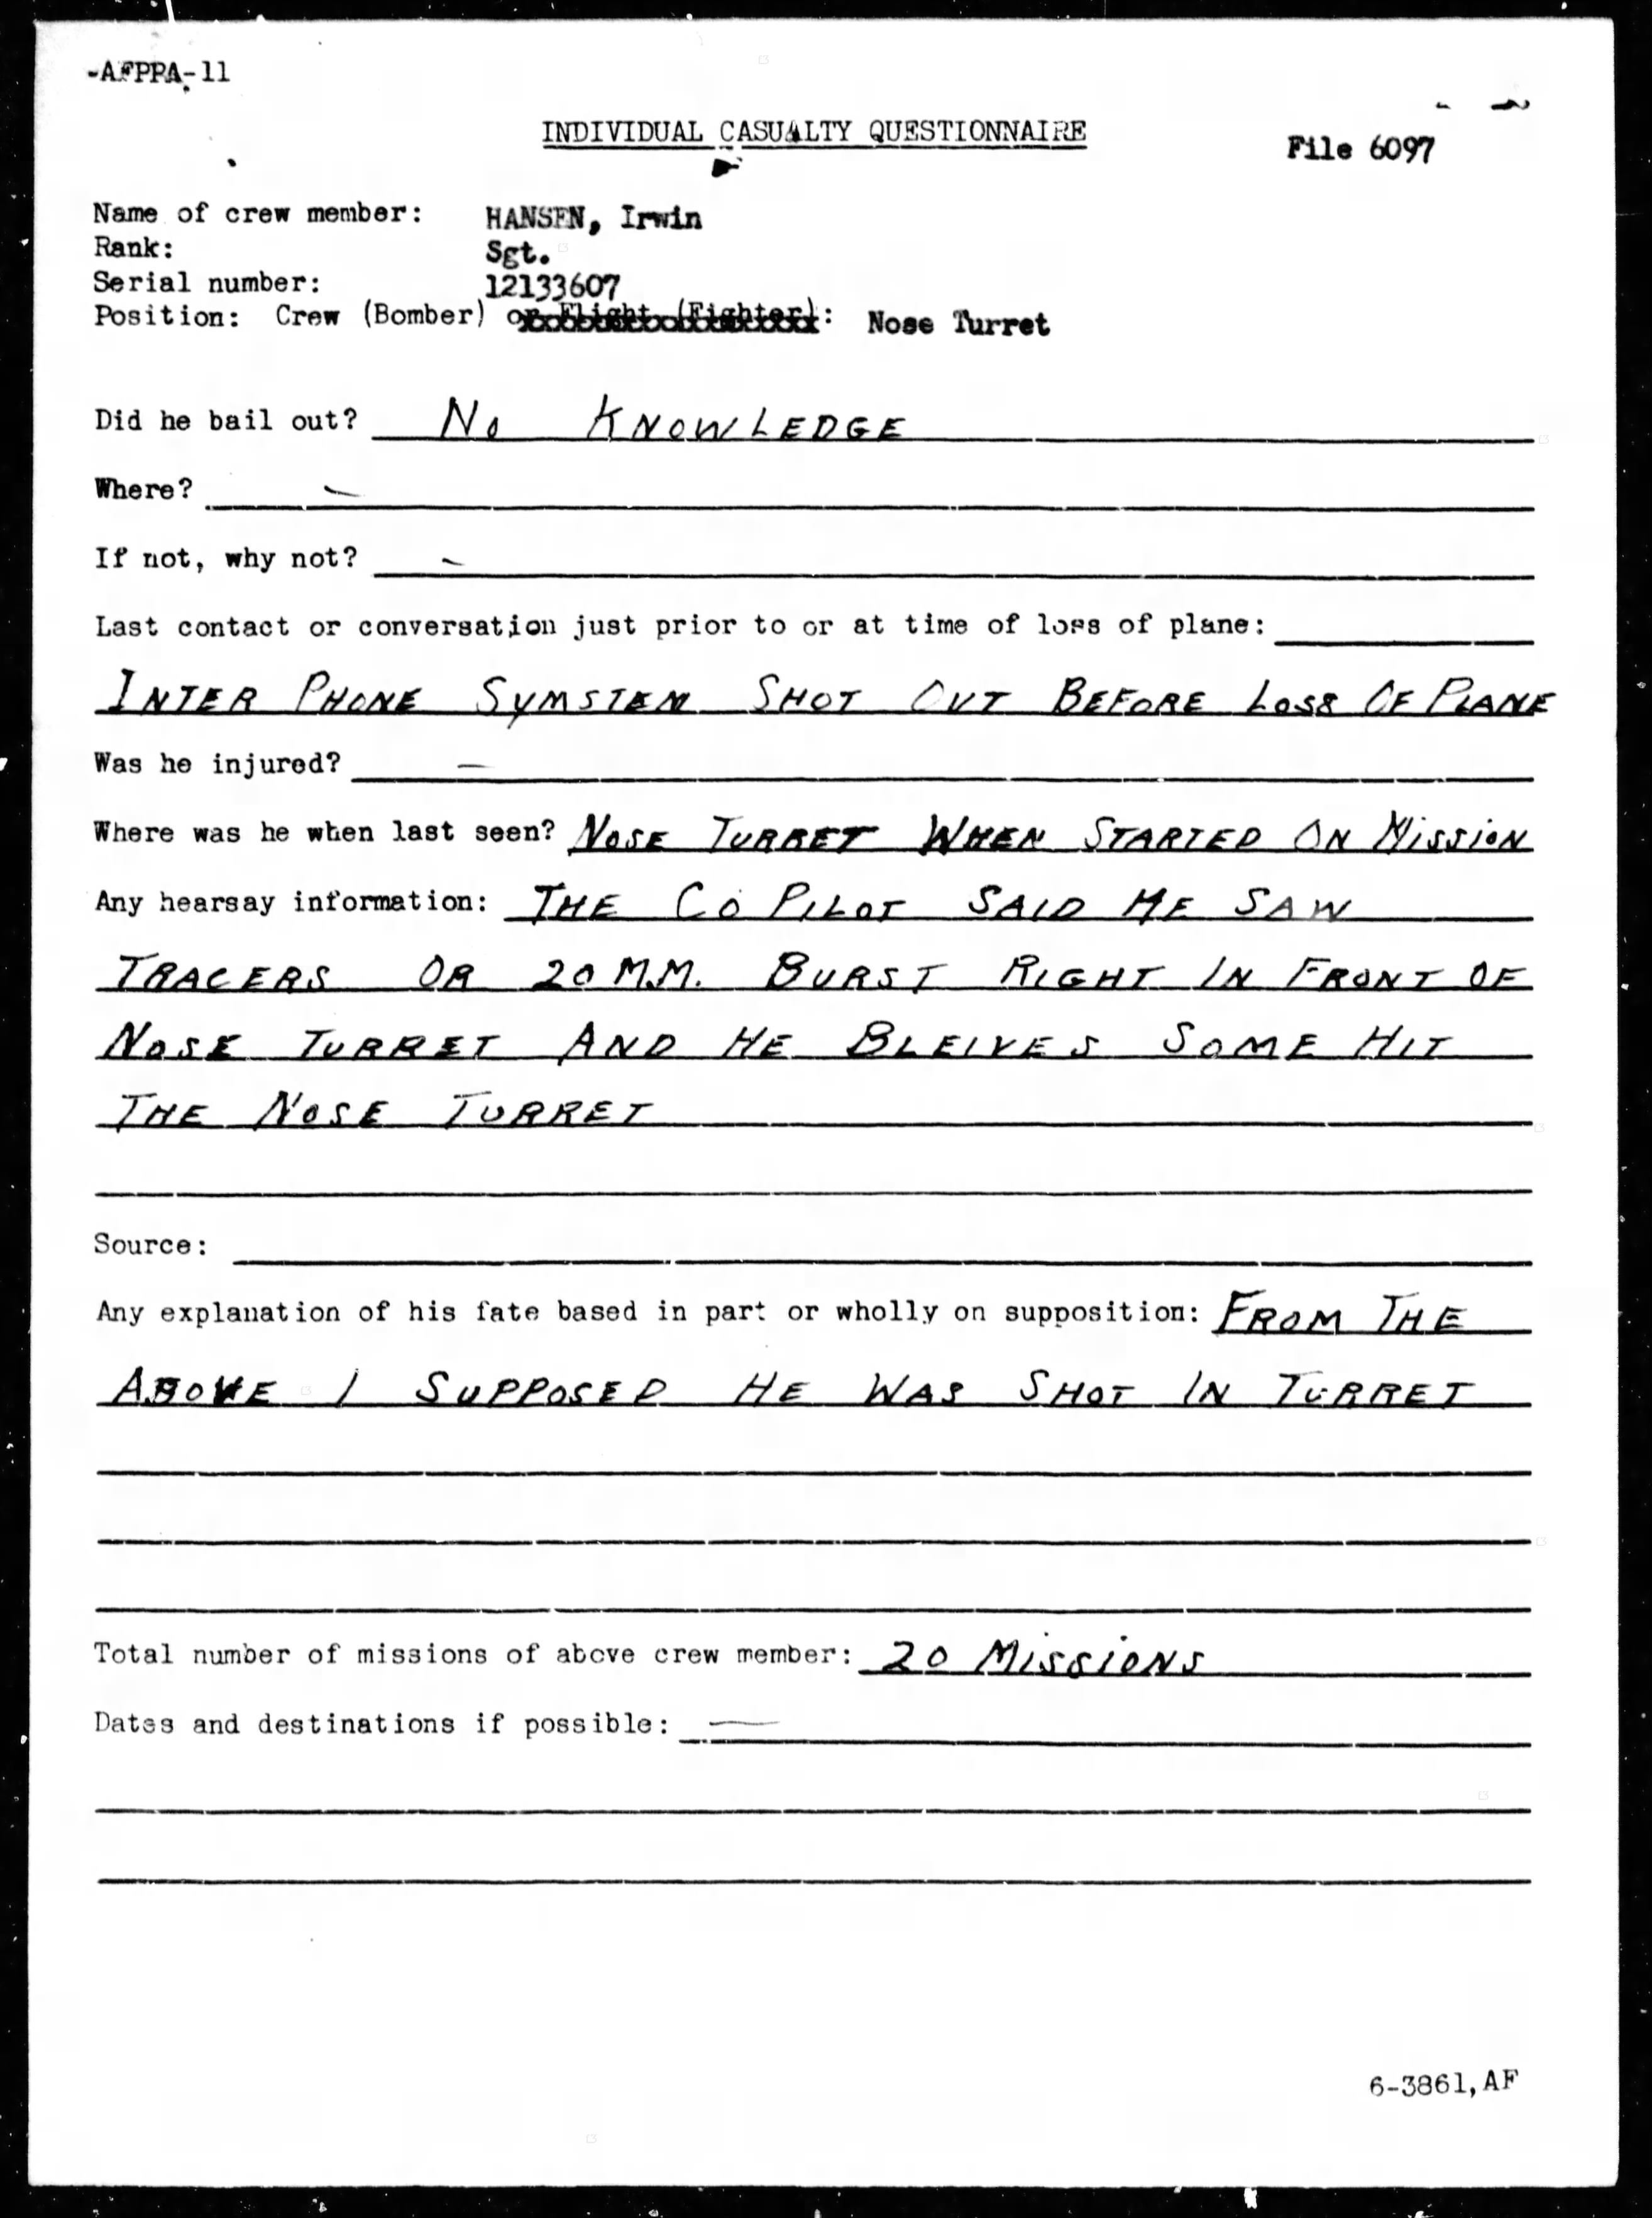 -AFPPA-11
INDIVIDUAL CASUALTY QUESTIONNAIRE
File 6097
Name of crew member: HANSEN, Irwin
Rank: Sgt.
Serial number: 12133607
Position: Crew (Bomber) or Flight (Fighter): Nose Turret
Did he bail out? No KNOWLEDGE
Where? -
If not, why not? -
Last contact or conversation just prior to or at time of loss of plane:
INTER PHONE SYMSTEM SHOT OUT BEFORE LOSS OF PLANE
Was he injured? -
Where was he when last seen? NOSE TURRET WHEN STARTED ON MISSION
Any hearsay information: THE CO PILOT SAID HE SAW
TRACERS OR 20 M.M. BURST RIGHT IN FRONT OF
NOSE TURRET AND HE BLEIVES SOME HIT
THE NOSE TURRET
Source:
Any explanation of his fate based in part or wholly on supposition: FROM THE
ABOVE I SUPPOSED HE WAS SHOT IN TURRET
Total number of missions of above crew member: 20 MISSIONS
Dates and destinations if possible: -
6-3861, AF